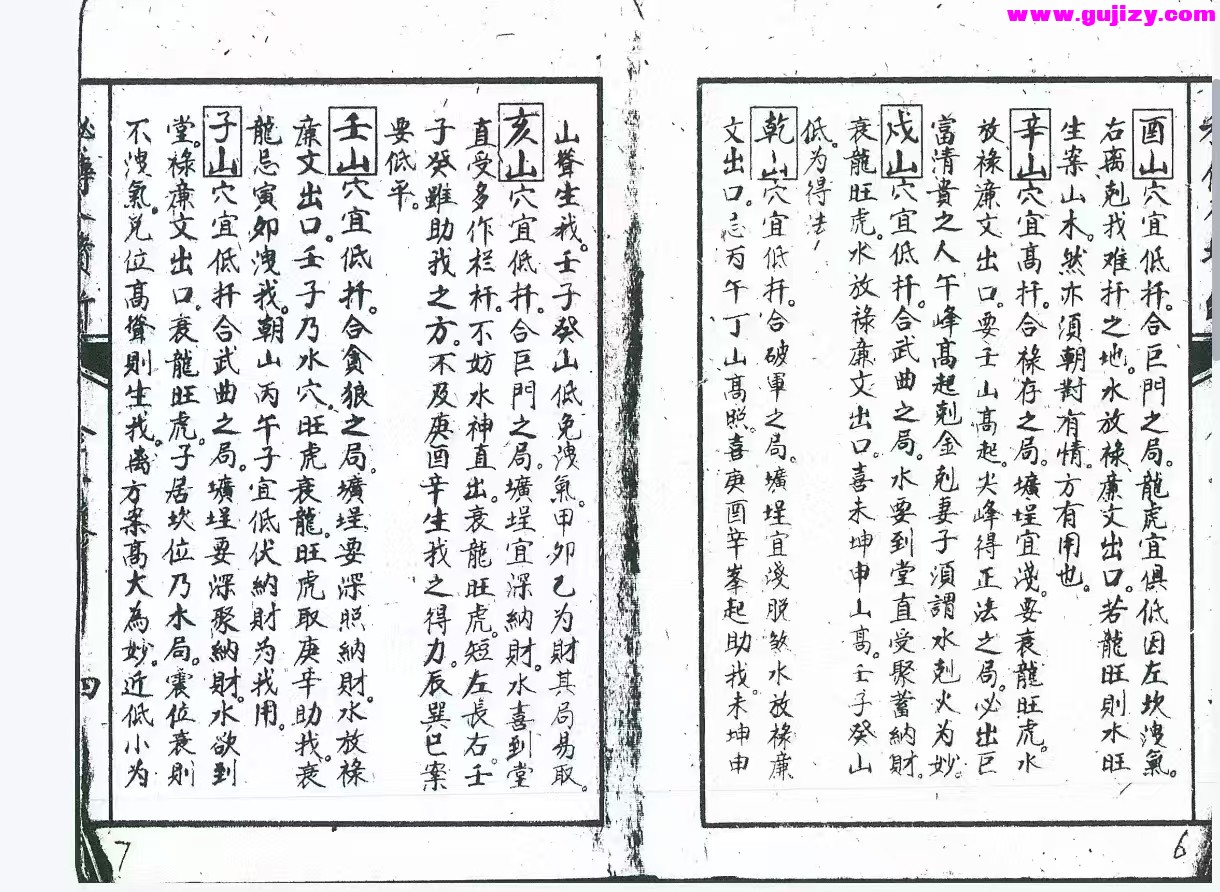 www.gujizy.com
酉山穴宜低扦。合巨門之局。龍虎宜俱低因左坎洩氣。
右离剋我难扦之地。水放禄廉文出口。若龍旺則水旺
生案山木。然亦須朝對有情。方有用也。
辛山穴宜高扦。合禄存之局。壙埕宜淺。要衰龍旺虎。水
放禄廉文出口。要壬山高起。尖峰得正法之局。必出巨
富清貴之人午峰高起剋金剋妻子須謂水剋火为妙。
戌山穴宜低扦。合武曲之局。水要到堂直受聚蓄納財。
衰龍旺虎。水放禄廉文出口。喜未坤申山高。壬子癸山
低。为得法！
乾山穴宜低扦。合破軍之局。壙埕宜淺脫煞水放禄廉
文出口。忌丙午丁山高照。喜庚酉辛峯起助我。未坤申
6
山聳生我。壬子癸山低免洩氣。甲卯乙为財其局易取。
亥山穴宜低扦。合巨門之局。壙埕宜深納財。水喜到堂
直受多作栏杆。不妨水神直出。衰龍旺虎。短左長右。壬
子癸雖助我之方。不及庚酉辛生我之得力。辰巽巳案
要低平。
壬山穴宜低扦。合貪狼之局。壙埕要深照納財。水放禄
廉文出口。壬子乃水穴。旺虎衰龍。旺虎取庚辛助我。衰
龍忌寅卯洩我。朝山丙午子宜低伏納財为我用。
子山穴宜低扦合武曲之局。壙埕要深聚納財。水欲到
堂。禄廉文出口。衰龍旺虎。子居坎位乃水局。震位衰則
不洩氣。兌位高聳則生我。离方案高大為妙。近低小为
四
7